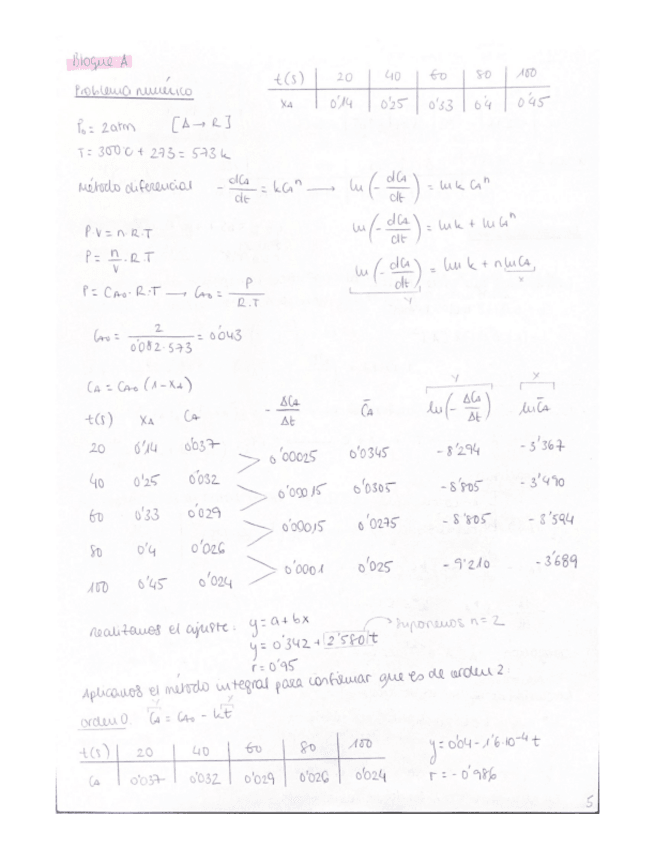 Bloque A
Problema numérico
t(s) | 20 | 40 | 60 | 80 | 100
XA | 0'14 | 0'25 | 0'33 | 0'4 | 0'45
P₀ = 2atm [A → R]
T = 300ºC + 273 = 573 k
Método diferencial - dCA/dt = kCAⁿ → ln(- dCA/dt) = ln k CAⁿ
ln(- dCA/dt) = ln k + ln CAⁿ
ln(- dCA/dt) = ln k + n ln CA
Y X
P V = n R.T
P = n/V . R.T
P = CA0 . R.T → CA0 = P/R.T
CA0 = 2/0'082·573 = 0'043
CA = CA0 (1-XA)
Y X
t(s) XA CA - ΔCA/Δt C̄A ln(- ΔCA/Δt) ln C̄A
20 0'14 0'037
0'00025 0'0345 -8'294 -3'367
40 0'25 0'032
0'00015 0'0305 -8'805 -3'490
60 0'33 0'029
0'00015 0'0275 -8'805 -3'594
80 0'4 0'026
0'0001 0'025 -9'210 -3'689
100 0'45 0'024
realizamos el ajuste. y = a + bx
y = 0'342 + 2'580 t → Suponemos n = 2
r = 0'95
Aplicamos el método integral para confirmar que es de orden 2
Y X
orden 0. CA = CA0 - kt
t(s) | 20 | 40 | 60 | 80 | 100
CA | 0'037 | 0'032 | 0'029 | 0'026 | 0'024
y = 0'04 - 1'6·10⁻⁴ t
r = -0'986
5